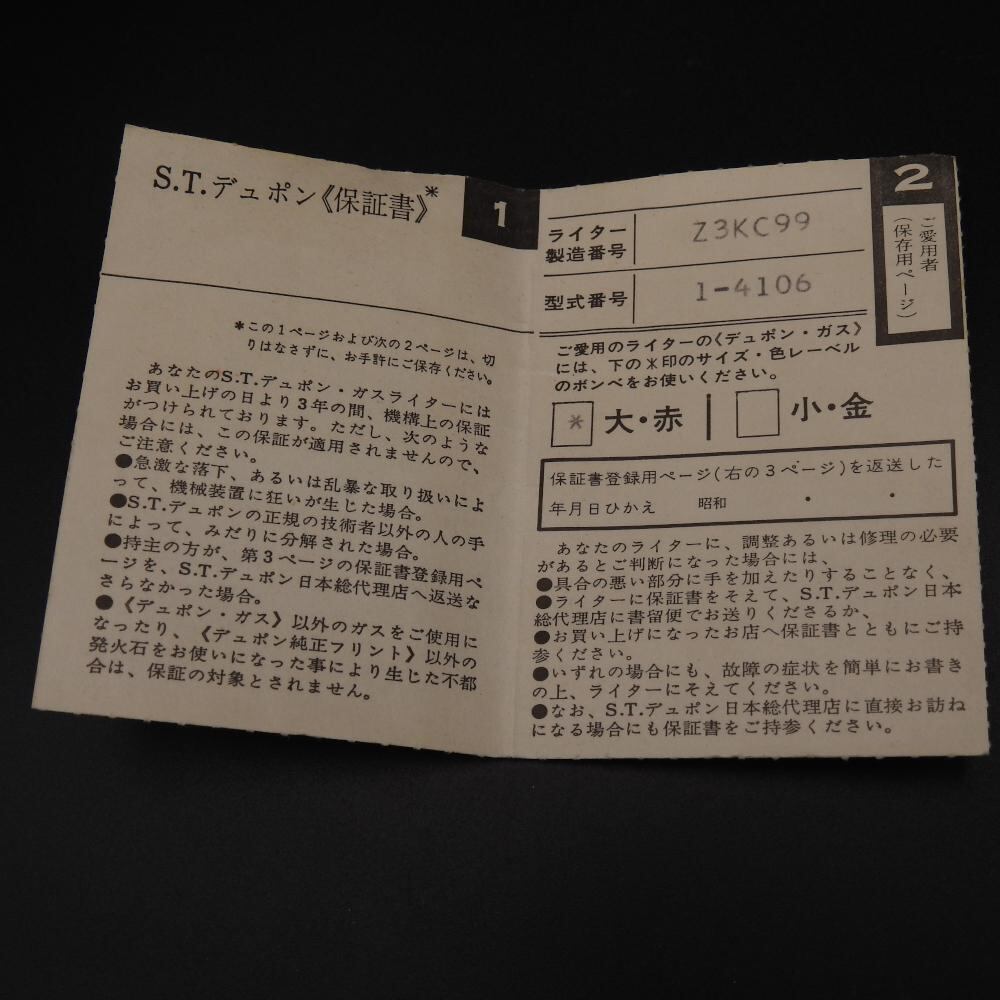 S.T.デュポン《保証書》*
1
*この1ページおよび次の2ページは、切
りはなさずに、お手許にご保存ください。
あなたのS.T.デュポン・ガスライターには
お買い上げの日より3年の間、機構上の保証
がつけられております。ただし、次のような
場合には、この保証が適用されませんので、
ご注意ください。
●急激な落下、あるいは乱暴な取り扱いによ
って、機械装置に狂いが生じた場合。
●S.T.デュポンの正規の技術者以外の人の手
によって、みだりに分解された場合。
●持主の方が、第3ページの保証書登録用ペ
ージを、S.T.デュポン日本総代理店へ返送な
さらなかった場合。
●《デュポン・ガス》以外のガスをご使用に
なったり、《デュポン純正フリント》以外の
発火石をお使いになった事により生じた不都
合は、保証の対象とされません。
2
ご愛用者
(保存用ページ)
ライター
製造番号
Z3KC99
型式番号
1-4106
ご愛用のライターの《デュポン・ガス》
には、下の*印のサイズ・色レーベル
のボンベをお使いください。
* 大・赤 小・金
保証書登録用ページ(右の3ページ)を返送した
年月日ひかえ 昭和 ・ ・
あなたのライターに、調整あるいは修理の必要
があるとご判断になった場合には、
●具合の悪い部分に手を加えたりすることなく、
●ライターに保証書をそえて、S.T.デュポン日本
総代理店に書留便でお送りくださるか、
●お買い上げになったお店へ保証書とともにご持
参ください。
●いずれの場合にも、故障の症状を簡単にお書き
の上、ライターにそえてください。
●なお、S.T.デュポン日本総代理店に直接お訪ね
になる場合にも保証書をご持参ください。